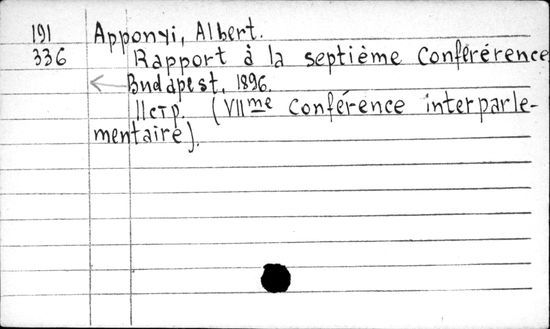 191 Apponyi, Albert.
336 Rapport à la septième Conferérence
Budapest, 1896.
11стр. (VIIme Conférence interparle-
mentaire).